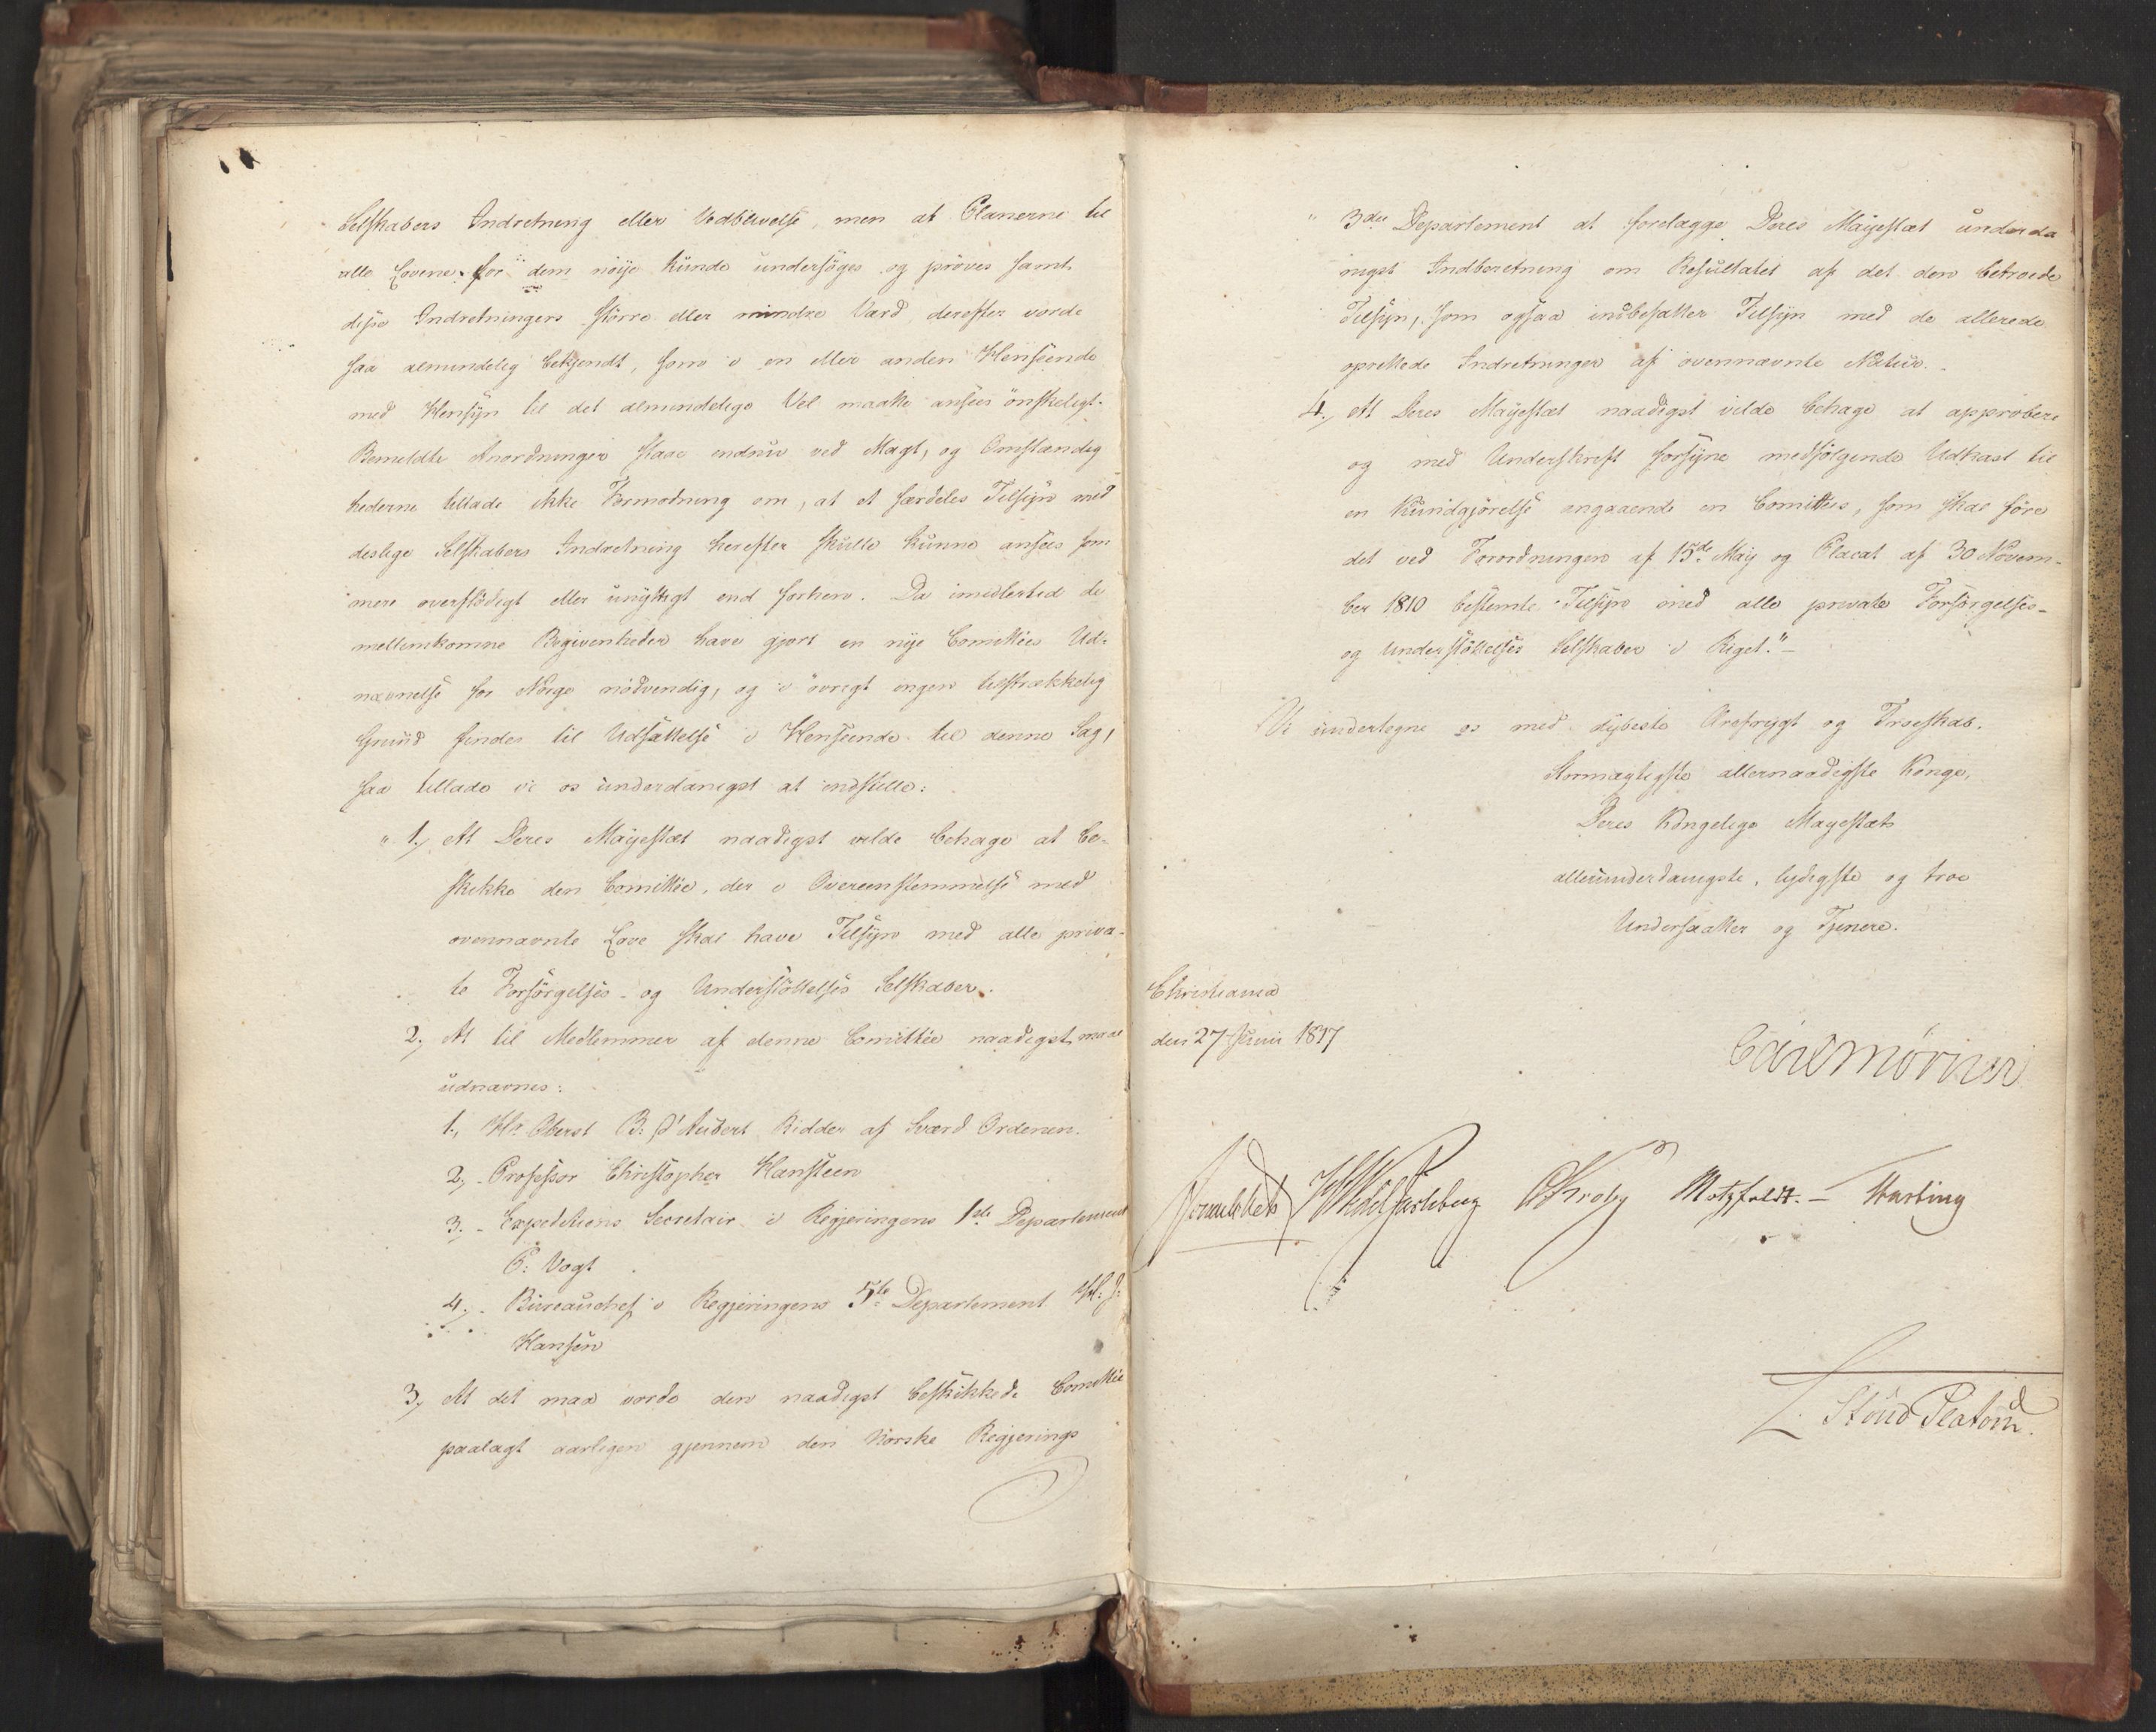 Selskabers Indretning eller Vedblivelse, men at Planerne til
alle Lovene for dem nöije kunde undersöges og pröves samt
disse Indretningers större eller mindre Værd derefter vorde
saa almindelig bekjendt, som i en eller anden Henseende
med Hensÿn til det almindelige Vel maatte ansees önskeligt.
Bemeldte Anordninger staae endnu ved Magt, og Omstændig
hederne tillade ikke Formodning om, at et særdeles Tilsÿn med
deslige Selskabers Indretning herefter skulle kunne ansees som
mere overflödigt eller unÿttigt end forhen. Da imidlertid de
mellemkomne Begivenheder have gjort en nÿe Comittées Ud-
nævnelse for Norge nödvendig, og i övrigt ingen tilstrækkelig
Grund findes til Udsættelse i Henseende til denne Sag,
saa tillade vi os underdanigst at indstille:
" 1, At Deres Majestæt naadigst vilde behage at be-
skikke den Comittée, der i Overeenstemmelse med
ovennævnte Love skal have Tilsÿn med alle priva-
te Forsörgelses- og Understöttelses Selskaber.
2, At til Medlemmer af denne Comittée naadigst maae
udnævnes:
1, Hr. Oberst B: d'Aubert Ridder af Sværd Ordenen.
2, - Professor Christopher Hansteen
3, - Expeditions Secretair i Regjeringens 1ste Departement
P: Vogt
4, - Bureauchef i Regjeringens 5te Departement
Hansen
3, At det maa vorde den naadigst beskikkede Comittée
paalagt aarligen gjennem den Norske Regjerings
" 3die Departement at forelægge Deres Majestæt underda
nigst Indberetning om Resultatet af det den betroede
Tilsÿn, som ogsaa indbefatter Tilsÿn med de allerede
oprettede Indretninger af ovennævnte Natur.
4, At Deres Majestæt naadigst vilde behage at approbere
og med Underskrift forsÿne medfölgende Udkast til
en Kundgjörelse angaaende en Comittée, som skal före
det ved Forordningen af 15de Maÿ og Placat af 30 Novem-
ber 1810 bestemte Tilsÿn med alle private Forsörgelses-
og Understöttelses Selskaber i Riget." -
Vi undertegne os med dÿbeste Ærefrÿgt og Troeskab.
Stormægtigste allernaadigste Konge,
Deres Kongelige Majestæts
allerunderdanigste, lÿdigste og troe
Undersaatter og Tjenere.
Christiania
den 27 Junii 1817
Carl Mörner
Sommerhielm HWedelJarlsberg CKrohg Motzfeldt. - Hasting
L. Stoud Platou.